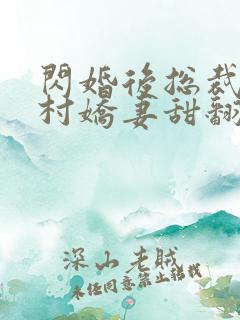 閃婚後總裁
村嬌妻甜翻
深山老賊
未經同意禁止轉載